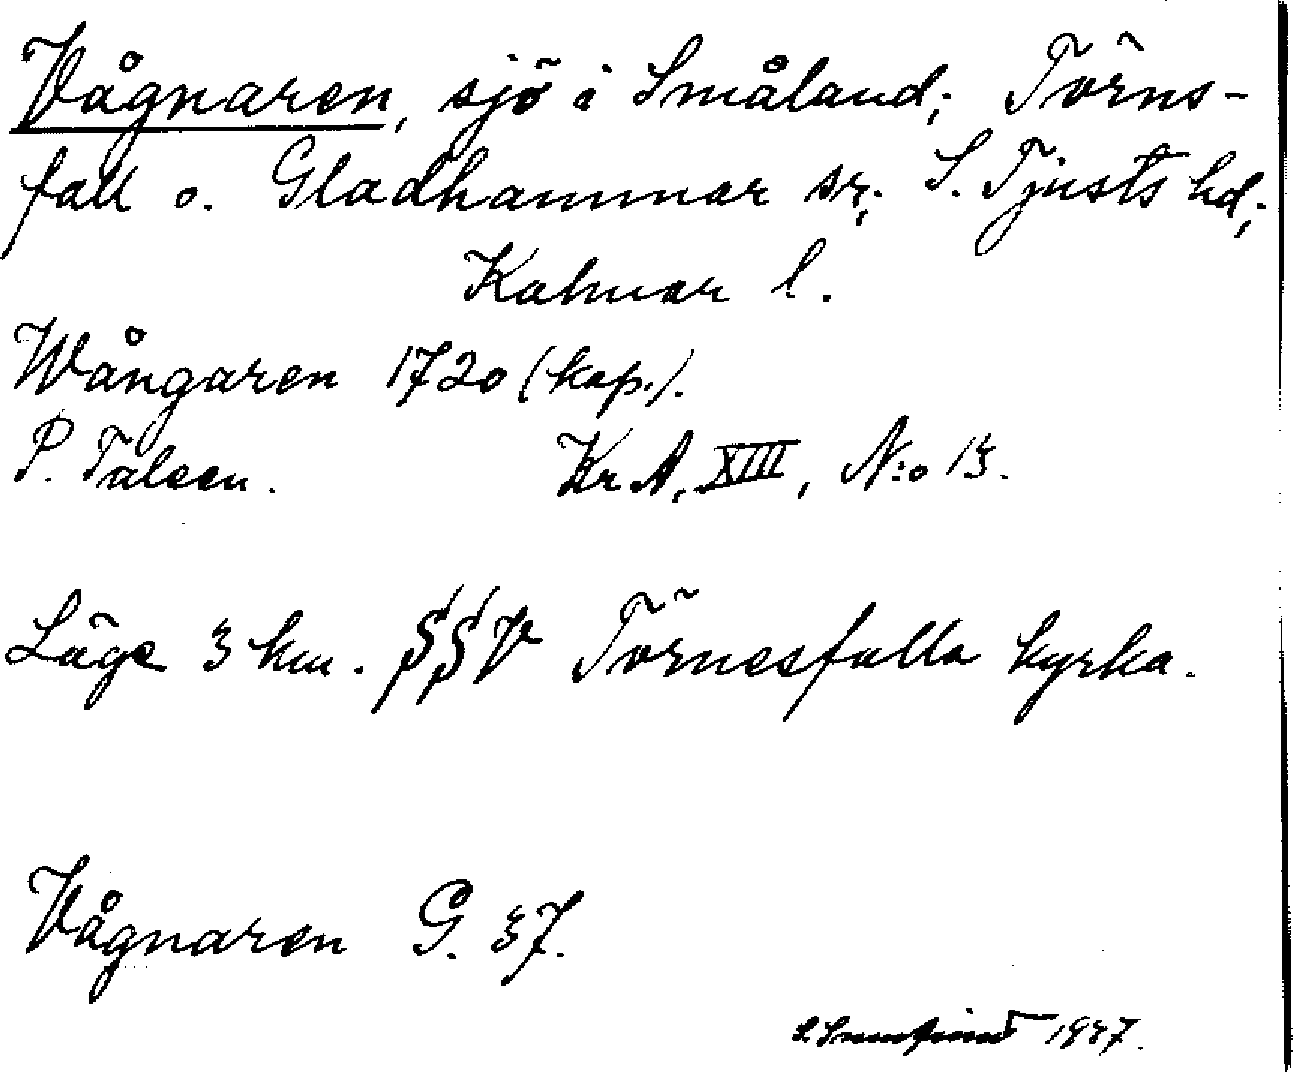 Vågnaren, sjö i Småland; Törns-
fall o. Gladhammar sr; S. Tjusts hd;
Kalmar l.
Wångaren 1720 (kop.).
P. Taleen. Kr A, XIII, N:o 13.
Läge 3 km. SSV Törnesfalla kyrka.
Vågnaren G. 37.
1937.